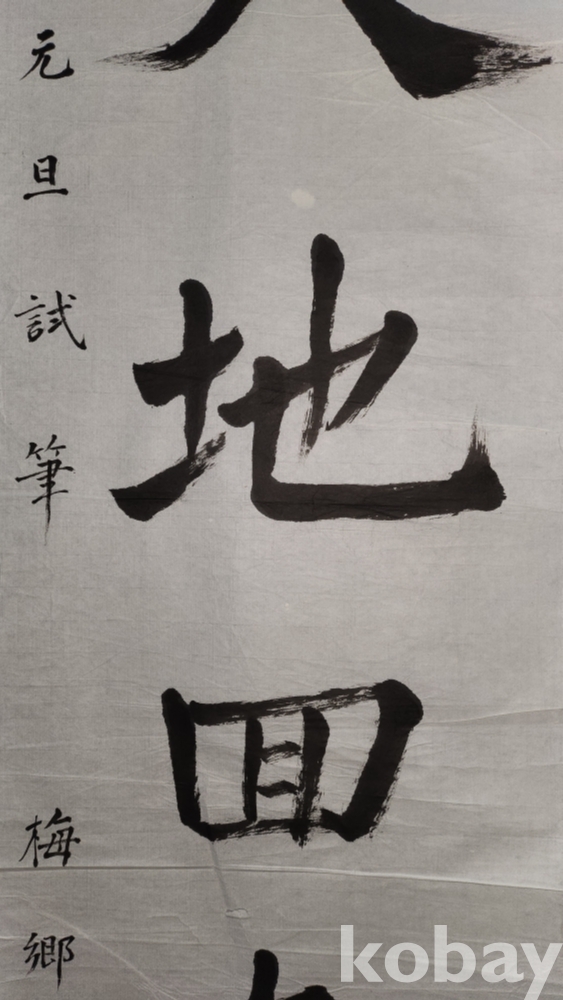 地囬
元旦試筆 梅郷
kobay